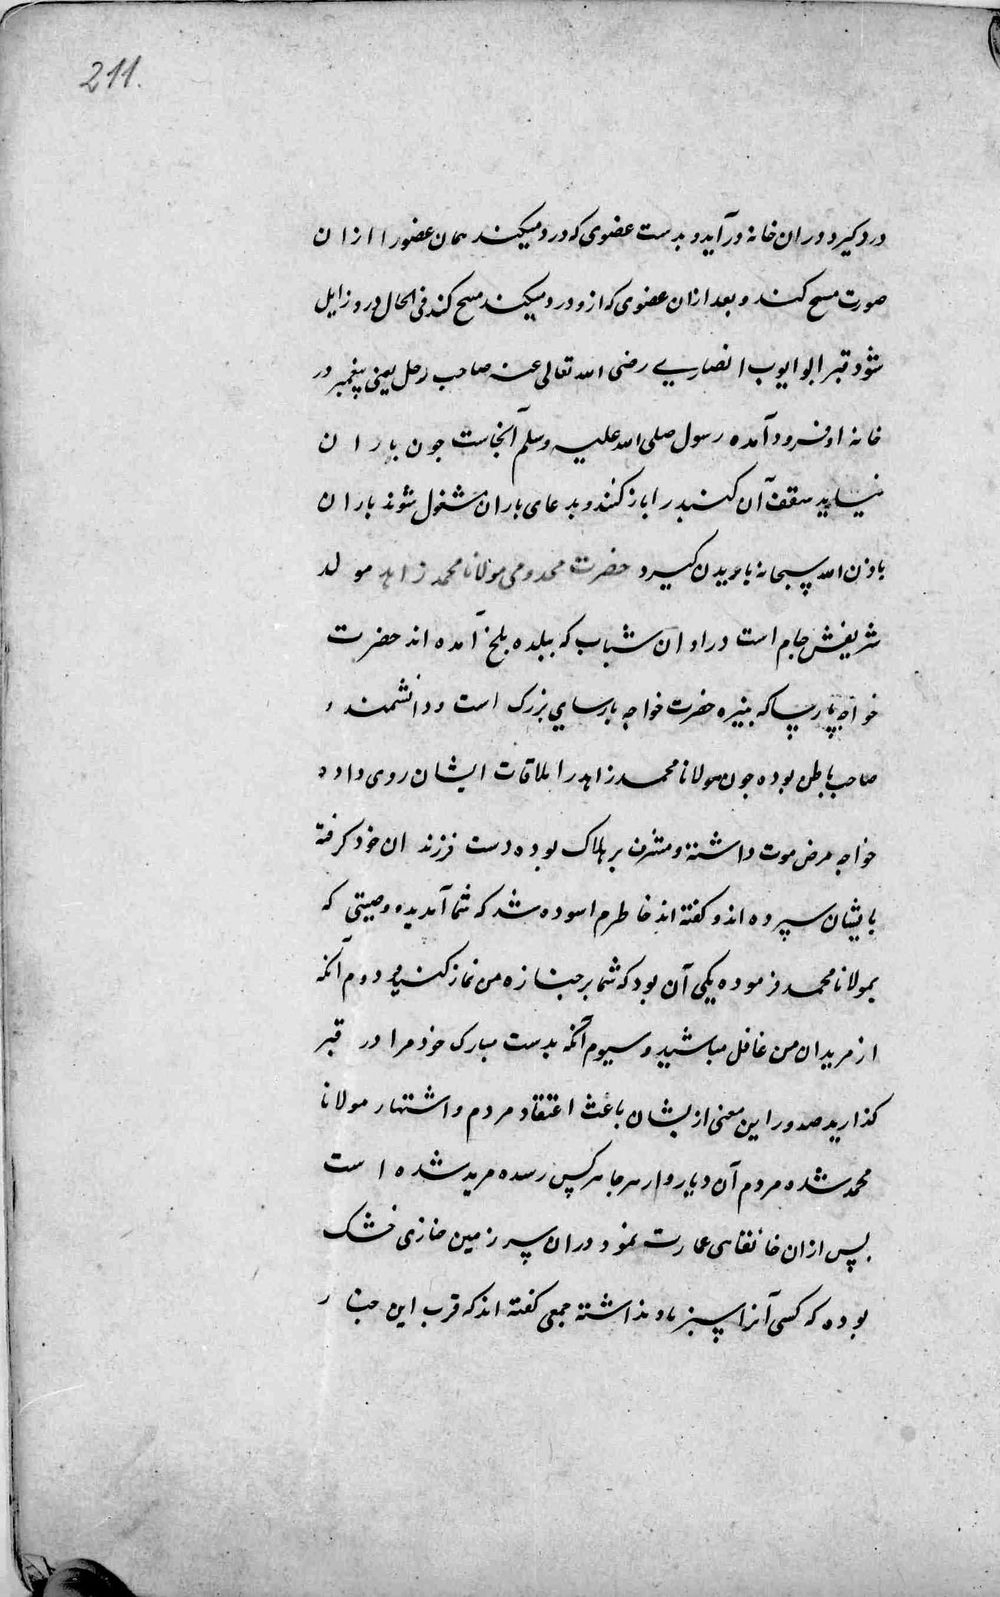 211.
درد کیرد دران خانه درآید و بدست عضوی که درد میکند همان عضو را ازان
صورت مسح کند و بعد ازان عضوی که ازو درد میکند مسح کند فی الحال درد زایل
شود قبر ابو ایوب انصاریے رضی الله تعالی عنه صاحب رحل یعنی پیغمبر در
خانه او فرود آمده رسول صلی الله علیه وسلم آنجاست جون باران
نیاید سقف آن کنبد را باز کنند و بدعای باران مشغول شوند باران
باذن الله سبحانه باریدن کیرد حضرت مخدومی مولانا محمد زاهد مولد
شریفش جام است در اوان شباب که ببلده بلخ آمده اند حضرت
خواجه پارسا که بنیره حضرت خواجه پارسای بزرک است و دانشمند و
صاحب باطن بوده جون مولانا محمد زاهد را ملاقات ایشان روی داده
خواجه مرض موت داشته و مشرف بر هلاک بوده دست فرزندان خود کرفته
بایشان سپرده اند و کفته اند خاطرم اسوده شد که شما آمدید و وصیتی که
بمولانا محمد فرموده یکی آن بود که شما بر جنازه من نماز کنید دوم آنکه
از مریدان من غافل مباشید و سیوم آنکه بدست مبارک خود مرا در قبر
کذارید صدور این معنی از یشان باعث اعتقاد مردم و اشتهار مولانا
محمد شده مردم آن دیار هر جا هر کس رسده مرید شده است
پس ازان خانقاهی عمارت نمود دران سر زمین خشک
بوده که کسی آنرا سبز نداشته جمعی کفته اند که قرب این